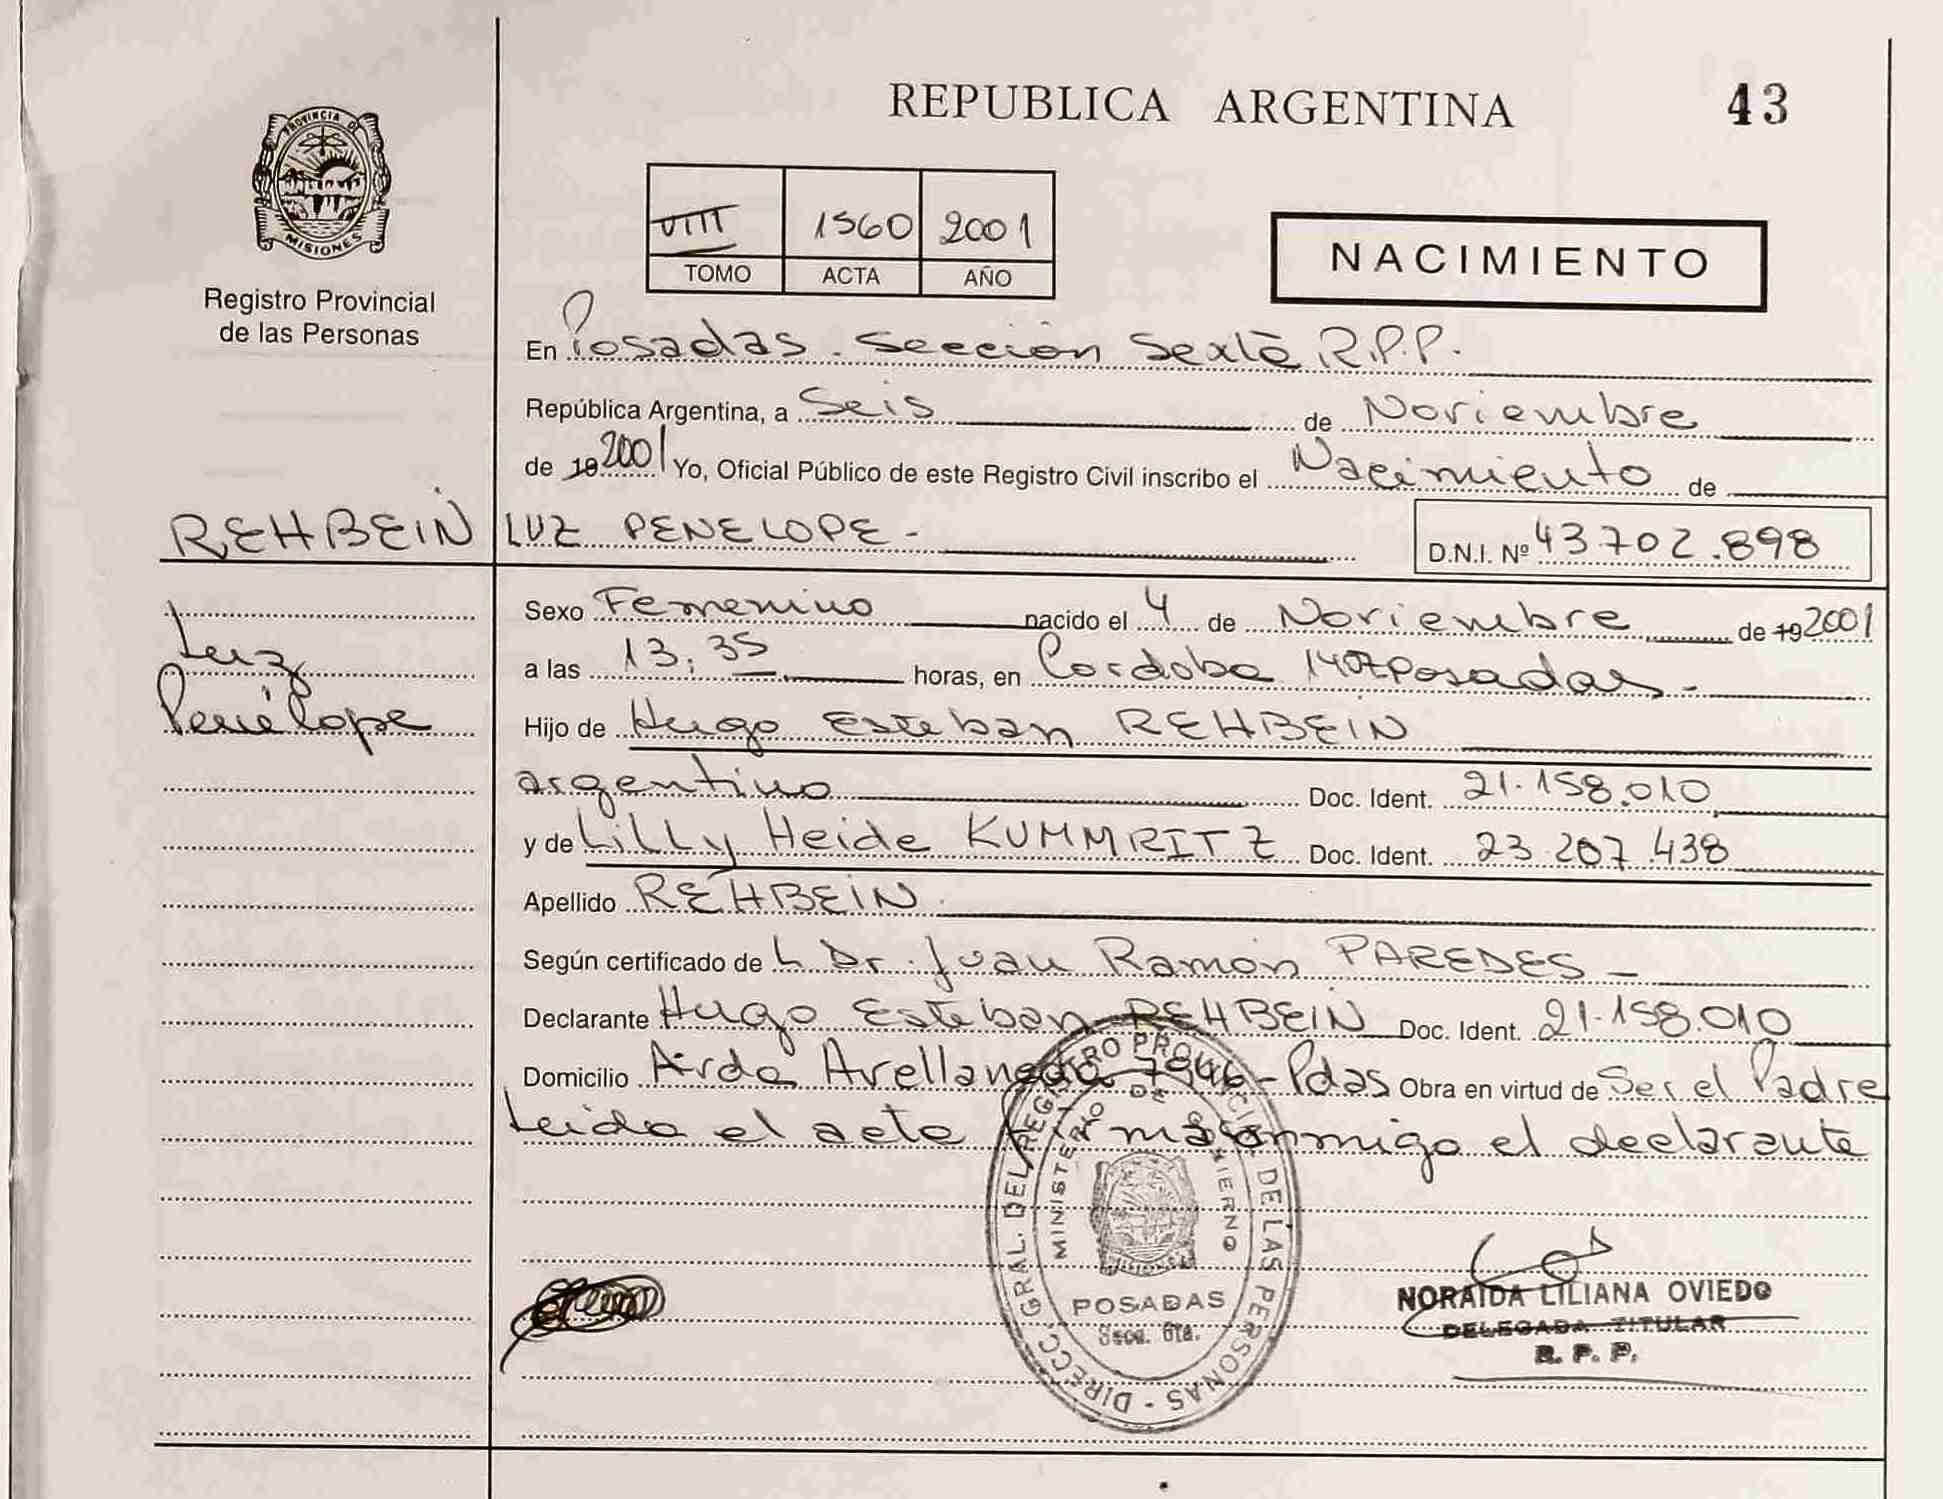 REPUBLICA ARGENTINA
43
PROVINCIA DE
MISIONES
Registro Provincial
de las Personas
VIII 1560 2001
TOMO ACTA AÑO
NACIMIENTO
En Posadas. Sección Sexta R.P.P.
República Argentina, a Seis de Noviembre
de 19 2001 Yo, Oficial Público de este Registro Civil inscribo el Nacimiento de
REHBEIN LUZ PENELOPE -
D.N.I. Nº 43702.898
Sexo Femenino nacido el 4 de Noviembre de 19 2001
Luz
Penélope
a las 13:35 horas, en Cordoba 1407 Posadas -
Hijo de Hugo Esteban REHBEIN
argentino Doc. Ident. 21.158.010
y de Lilly Heide KUMMRITZ Doc. Ident. 23 207.438
Apellido REHBEIN
Según certificado de L Dr. Juan Ramón PAREDES -
Declarante Hugo Esteban REHBEIN Doc. Ident. 21.158.010
Domicilio Avda Avellaneda - Pdas Obra en virtud de Ser el Padre
Leido el acto firma conmigo el declarante
DIRECC. GRAL. DEL REGISTRO PROVINCIAL DE LAS PERSONAS -
MINISTERIO DE GOBIERNO
MISIONES
POSADAS
Secc. 6ta.
NORAIDA LILIANA OVIEDO
DELEGADA TITULAR
R. P. P.